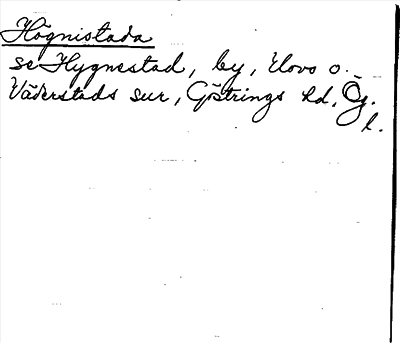 Högnistada
se Hygnestad, by, Elovo o.
Väderstads sur, Göstrings hd, Ög.
l.